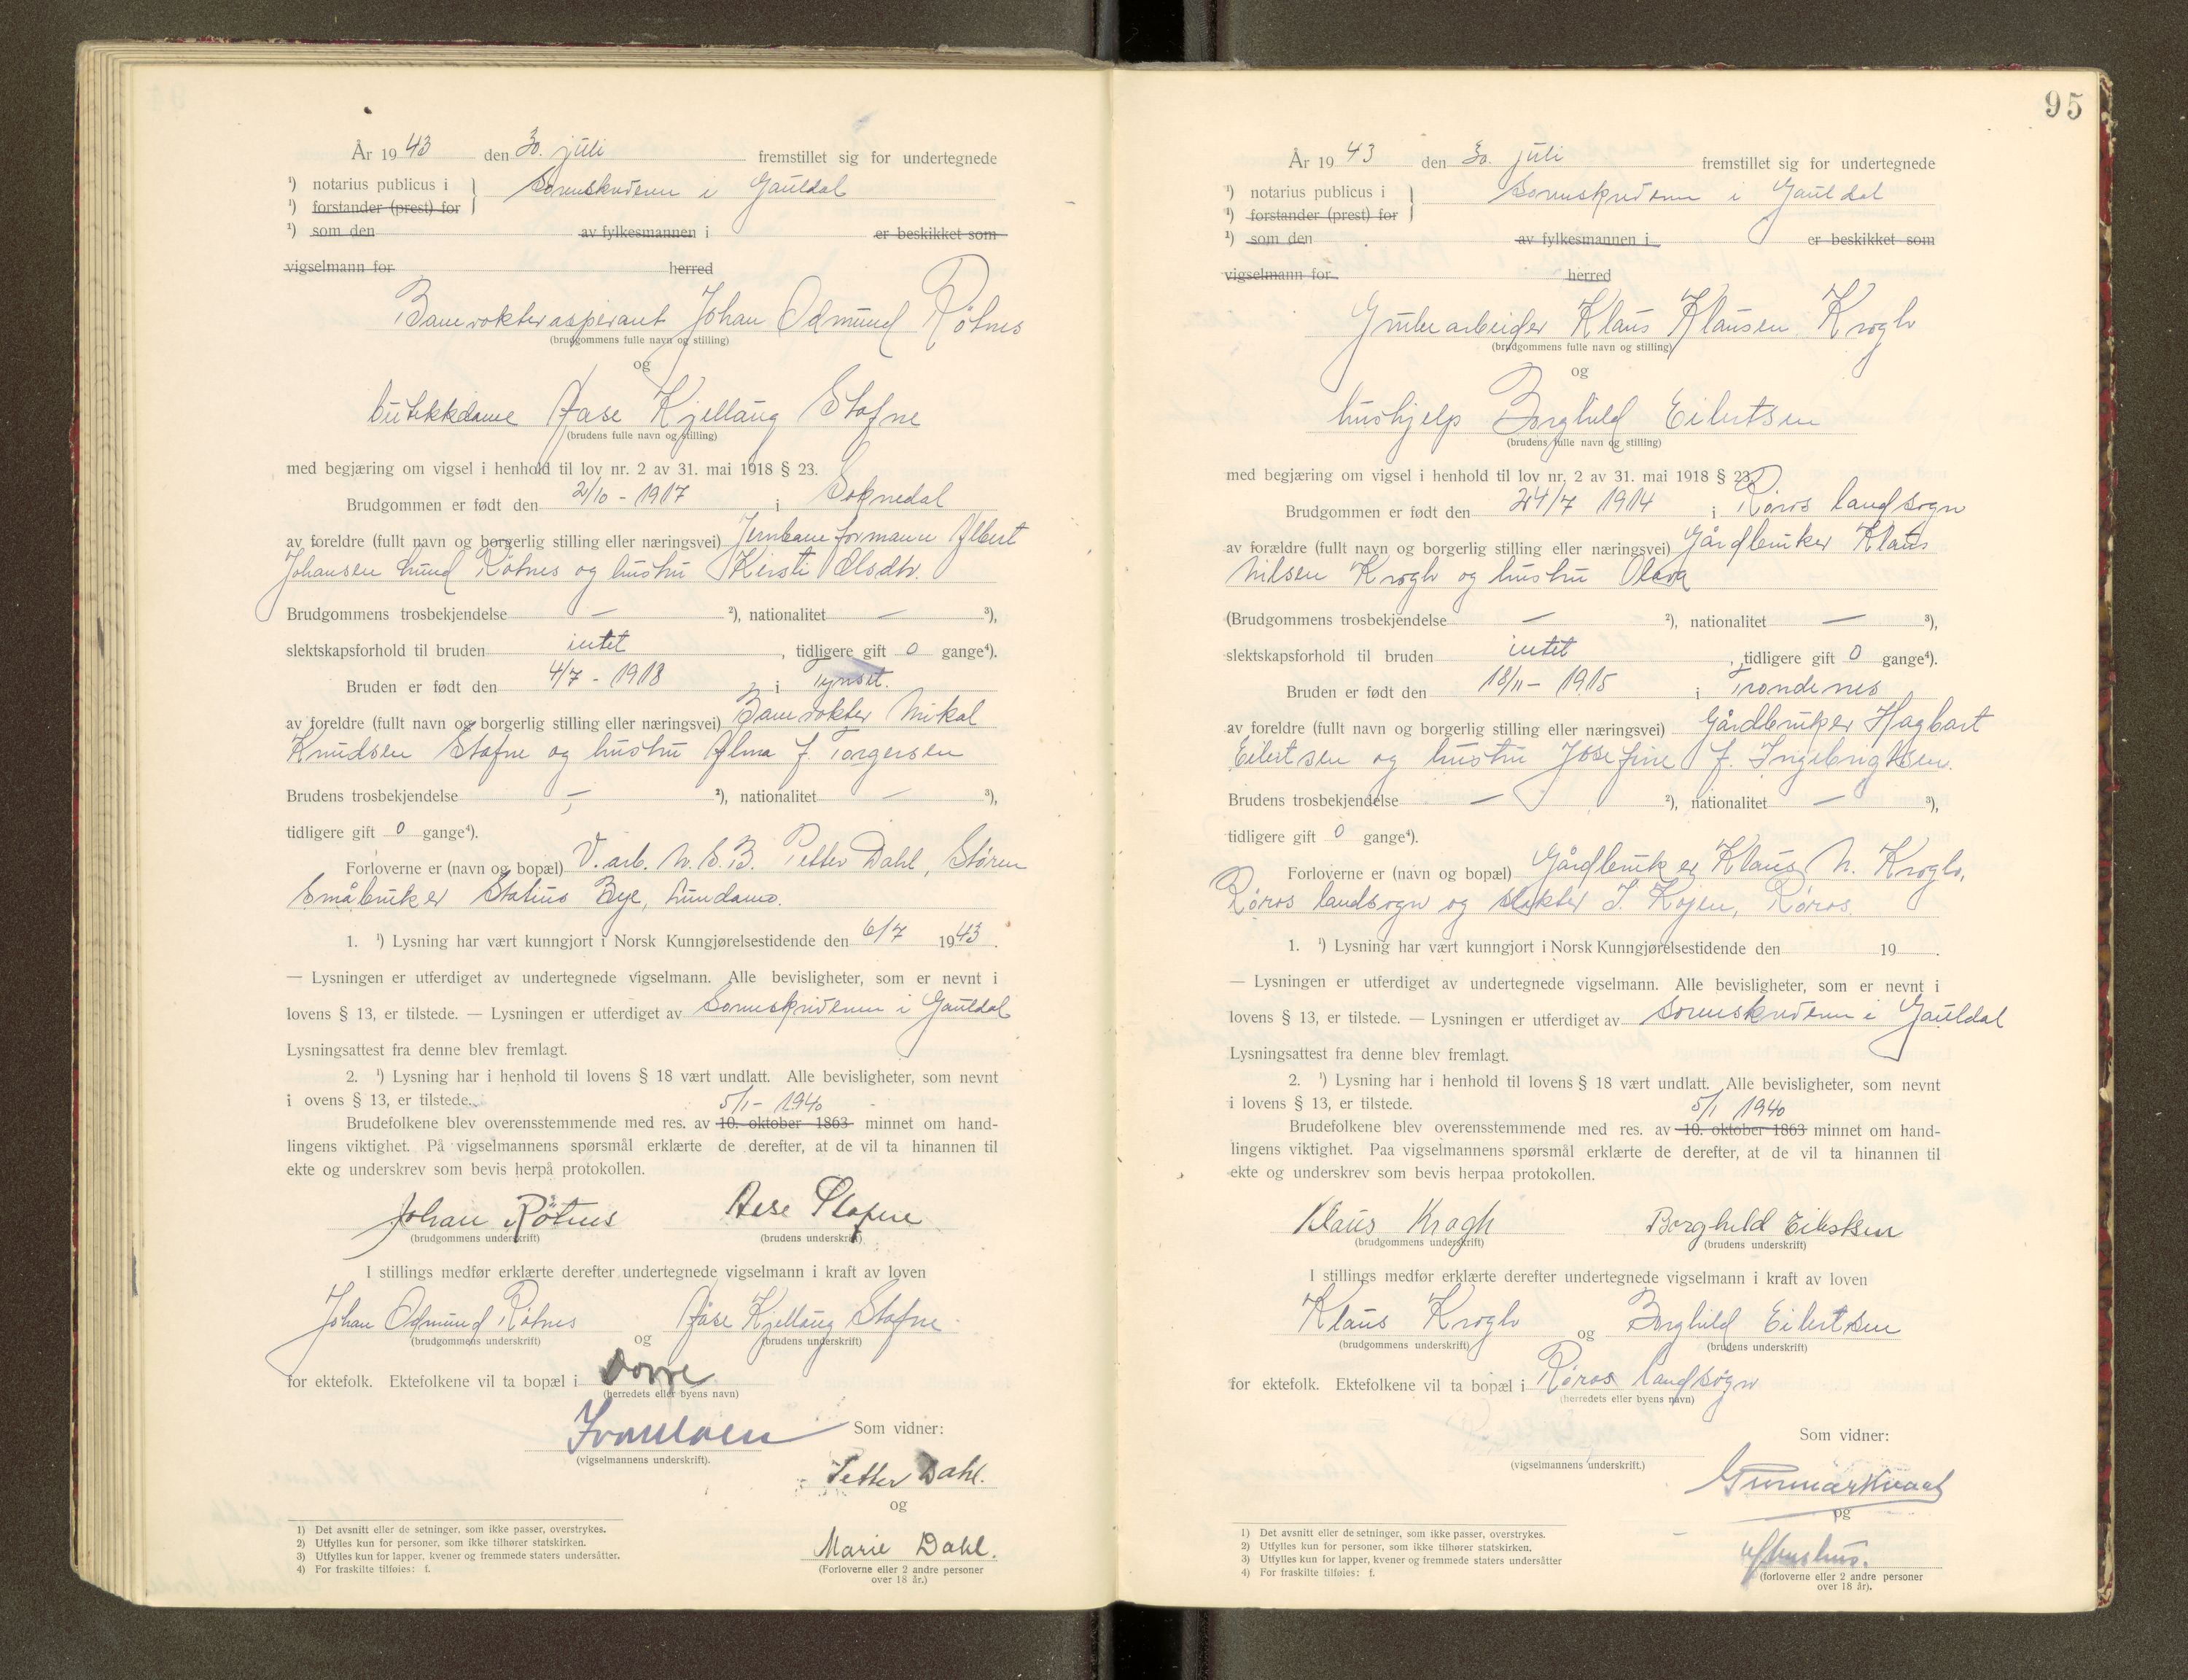 År 19 43 den 30. juli fremstillet sig for undertegnede
¹) notarius publicus i
¹) forstander (prest) for
Sorenskriveren i Gauldal
¹) som den av fylkesmannen i er beskikket som
vigselmann for herred
Banevokteraspirant Johan Odmund Rötnes
(brudgommens fulle navn og stilling)
og
butikkdame Aase Kjellaug Stafne
(brudens fulle navn og stilling)
med begjæring om vigsel i henhold til lov nr. 2 av 31. mai 1918 § 23.
Brudgommen er født den 2/10 - 1917 i Soknedal
av foreldre (fullt navn og borgerlig stilling eller næringsvei) Jernbaneformann Albert
Johansen Lund Rötnes og hustru Kirsti Olsdtr.
Brudgommens trosbekjendelse — ²), nationalitet — ³),
slektskapsforhold til bruden intet , tidligere gift 0 gange⁴).
Bruden er født den 4/7 - 1918 i Tynset.
av foreldre (fullt navn og borgerlig stilling eller næringsvei) Banevokter Mikal
Knudsen Stafne og hustru Alma f. Torgersen
Brudens trosbekjendelse — ²), nationalitet — ³),
tidligere gift 0 gange⁴).
Forloverne er (navn og bopæl) V. arb. N.S.B. Petter Dahl, Støren
Småbruker Statius Bye, Lundamo.
1. ¹) Lysning har vært kunngjort i Norsk Kunngjørelsestidende den 6/7 1943.
— Lysningen er utferdiget av undertegnede vigselmann. Alle bevisligheter, som er nevnt i
lovens § 13, er tilstede. — Lysningen er utferdiget av Sorenskriveren i Gauldal
Lysningsattest fra denne blev fremlagt.
2. ¹) Lysning har i henhold til lovens § 18 vært undlatt. Alle bevisligheter, som nevnt
i ovens § 13, er tilstede.
5/1 - 1940
Brudefolkene blev overensstemmende med res. av 10. oktober 1863 minnet om hand-
lingens viktighet. På vigselmannens spørsmål erklærte de derefter, at de vil ta hinannen til
ekte og underskrev som bevis herpå protokollen.
Johan Rötnes Aese Stafne
(brudgommens underskrift) (brudens underskrift)
I stillings medfør erklærte derefter undertegnede vigselmann i kraft av loven
Johan Odmund Rötnes og Aase Kjellaug Stafne
(brudgommens underskrift) (brudens underskrift)
for ektefolk. Ektefolkene vil ta bopæl i Dovre
(herredets eller byens navn)
Som vidner:
(vigselmannens underskrift).
Petter Dahl.
og
Marie Dahl.
(Forloverne eller 2 andre personer
over 18 år.)
1) Det avsnitt eller de setninger, som ikke passer, overstrykes.
2) Utfylles kun for personer, som ikke tilhører statskirken.
3) Utfylles kun for lapper, kvener og fremmede staters undersåtter.
4) For fraskilte tilføies: f.
95
År 19 43 den 30. juli fremstillet sig for undertegnede
¹) notarius publicus i
¹) forstander (prest) for
Sorenskriveren i Gauldal
¹) som den av fylkesmannen i er beskikket som
vigselmann for herred
Grubearbeider Klaus Klausen Krogh
(brudgommens fulle navn og stilling)
og
hushjelp Borghild Eilertsen
(brudens fulle navn og stilling)
med begjæring om vigsel i henhold til lov nr. 2 av 31. mai 1918 § 23.
Brudgommen er født den 24/7 1914 i Røros landsogn
av forældre (fullt navn og borgerlig stilling eller næringsvei) Gårdbruker Klaus
Nilsen Krogh og hustru Olava
(Brudgommens trosbekjendelse — ²), nationalitet — ³),
slektskapsforhold til bruden intet , tidligere gift 0 gange⁴).
Bruden er født den 18/11 - 1915 i Trondenes
av foreldre (fullt navn og borgerlig stilling eller næringsvei) Gårdbruker Hagbart
Eilertsen og hustru Josefine f. Ingebrigtsen.
Brudens trosbekjendelse — ²), nationalitet — ³),
tidligere gift 0 gange⁴).
Forloverne er (navn og bopæl) Gårdbruker Klaus N. Krogh,
Røros landsogn og slakter J. Kojen, Røros.
1. ¹) Lysning har vært kunngjort i Norsk Kunngjørelsestidende den 19 .
— Lysningen er utferdiget av undertegnede vigselmann. Alle bevisligheter, som er nevnt i
lovens § 13, er tilstede. — Lysningen er utferdiget av Sorenskriveren i Gauldal
Lysningsattest fra denne blev fremlagt.
2. ¹) Lysning har i henhold til lovens § 18 vært undlatt. Alle bevisligheter, som nevnt
i lovens § 13, er tilstede.
5/1 1940
Brudefolkene blev overensstemmende med res. av 10. oktober 1863 minnet om hand-
lingens viktighet. Paa vigselmannens spørsmål erklærte de derefter, at de vil ta hinannen til
ekte og underskrev som bevis herpaa protokollen.
Klaus Krogh Borghild Eilertsen
(brudgommens underskrift) (brudens underskrift)
I stillings medfør erklærte derefter undertegnede vigselmann i kraft av loven
Klaus Krogh og Borghild Eilertsen
(brudgommens underskrift) (brudens underskrift)
for ektefolk. Ektefolkene vil ta bopæl i Røros landsogn
(herredets eller byens navn)
Som vidner:
(vigselmannens underskrift.)
Gunnar Kvaal
og
(forloverne eller 2 andre personer
over 18 år).
1) Det avsnitt eller de setninger, som ikke passer, overstrykes.
2) Utfylles kun for personer, som ikke tilhører statskirken.
3) Utfylles kun for lapper, kvener og fremmede staters undersåtter
4) For fraskilte tilføies: f.